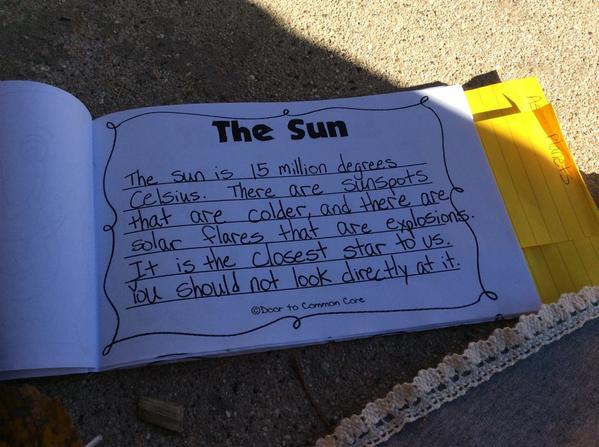 The Sun
The sun is 15 million degrees
Celsius. There are sunspots
that are colder, and there are
solar flares that are explosions.
It is the closest star to us.
You should not look directly at it.
©Door to Common Core
Planets